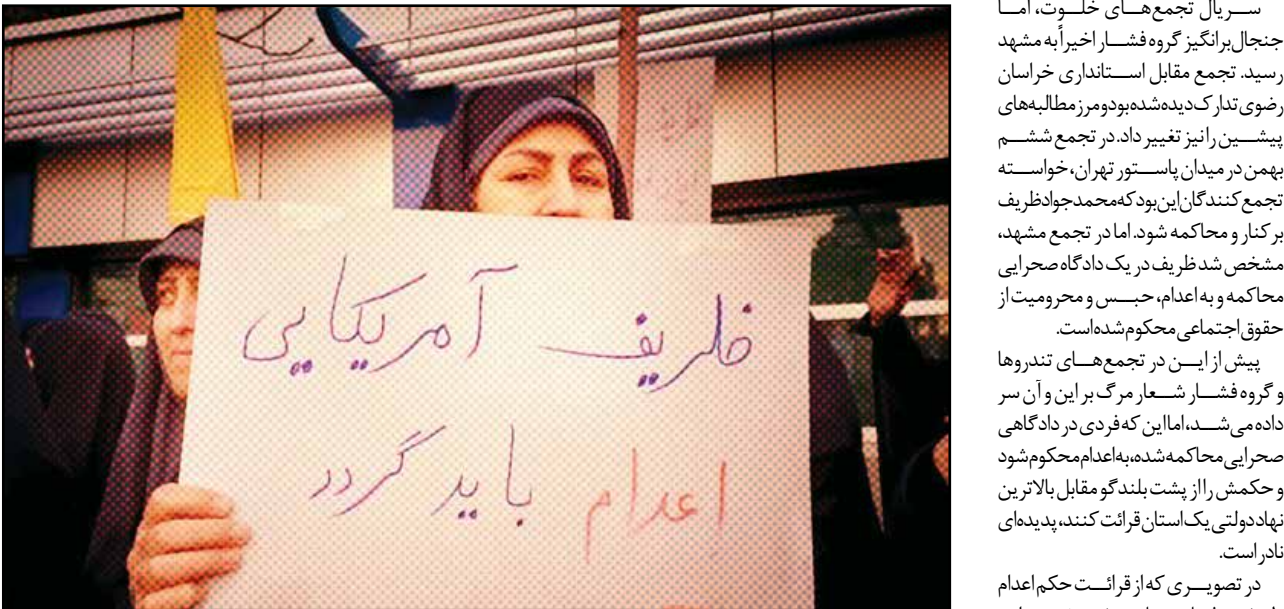 ظریف آمریکایی
اعدام باید گردد
سریال تجمع‌های خلوت، اما
جنجال‌برانگیز گروه فشار اخیراً به مشهد
رسید. تجمع مقابل استانداری خراسان
رضوی تدارک دیده شده بود و مرز مطالبه‌های
پیشین را نیز تغییر داد. در تجمع ششم
بهمن در میدان پاستور تهران، خواسته
تجمع‌کنندگان این بود که محمدجواد ظریف
برکنار و محاکمه شود. اما در تجمع مشهد،
مشخص شد ظریف در یک دادگاه صحرایی
محاکمه و به اعدام، حبس و محرومیت از
حقوق اجتماعی محکوم شده است.
پیش از این در تجمع‌های تندروها
و گروه فشار شعار مرگ بر این و آن سر
داده می‌شد، اما این که فردی در دادگاهی
صحرایی محاکمه شده، به اعدام محکوم شود
و حکمش را از پشت بلندگو مقابل بالاترین
نهاد دولتی یک استان قرائت کنند، پدیده‌ای
نادر است.
در تصویری که از قرائت حکم اعدام